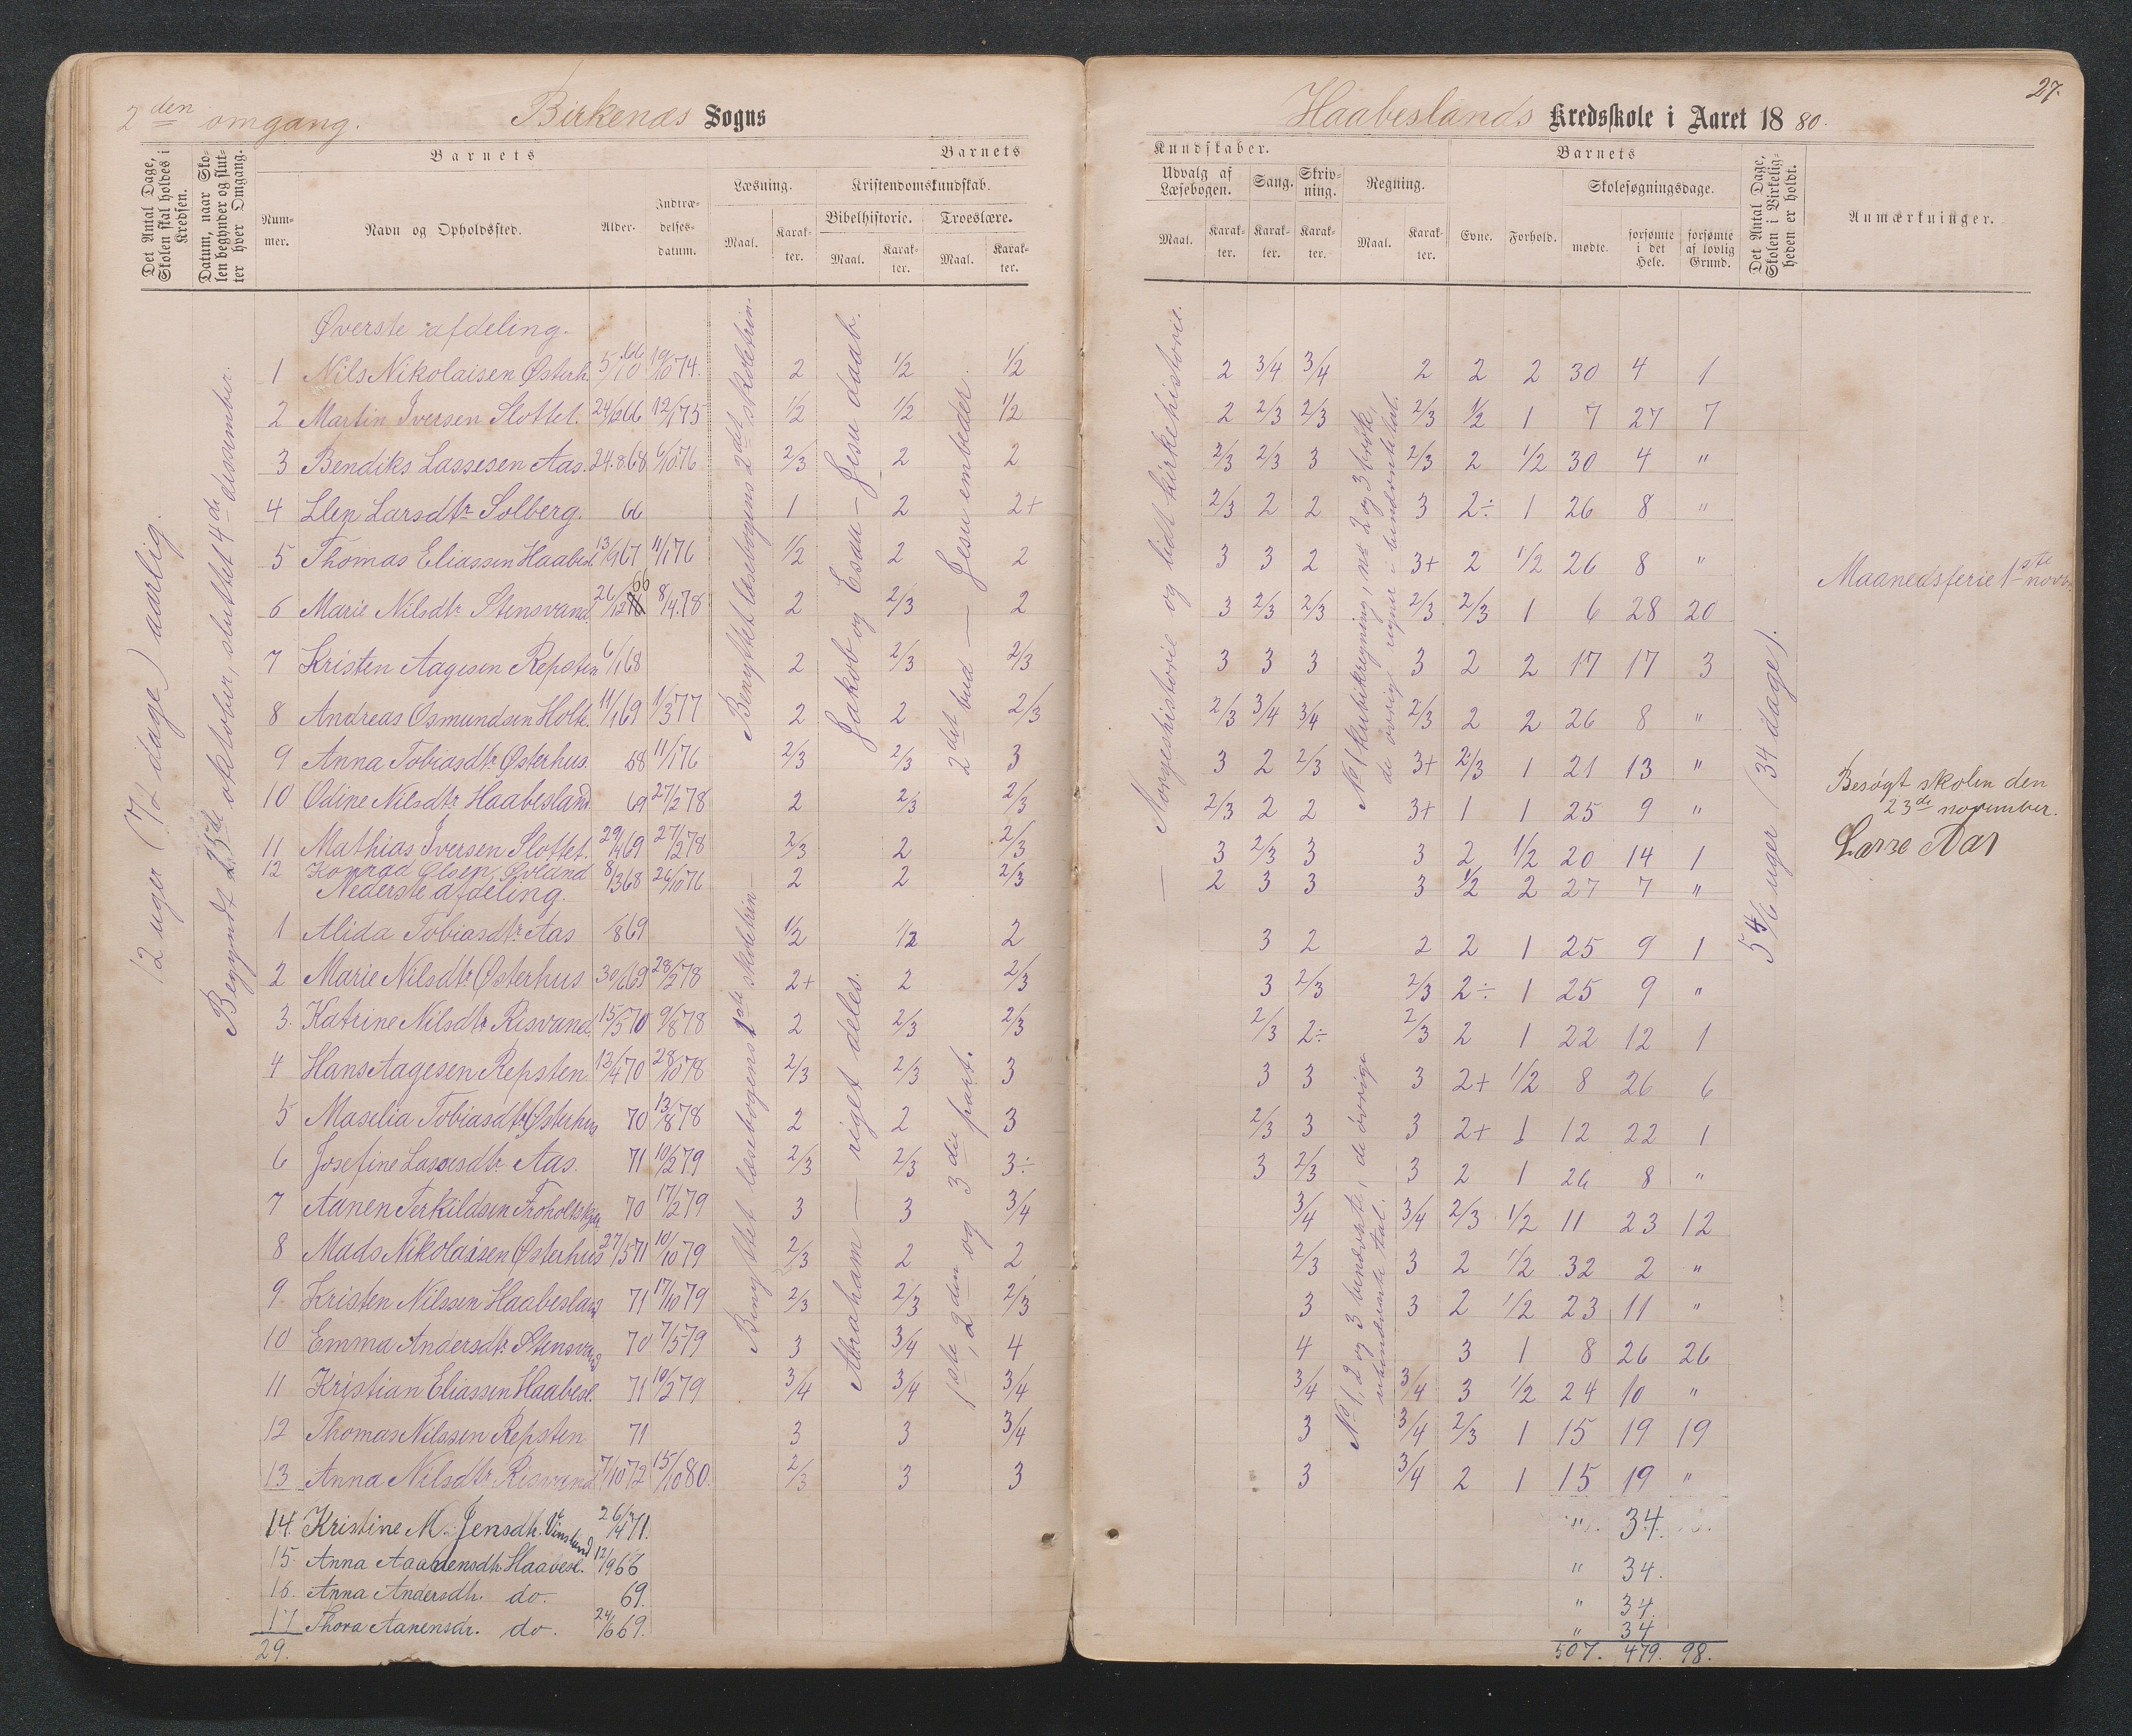 2den omgang.
Birkenæs Sogns
Haabeslands Kredsskole i Aaret 1880.
27.
Det Antal Dage, Skolen skal holdes i Kredsen.
Datum, naar Skolen begynder og slutter hver Omgang.
Barnets
Nummer.
Navn og Opholdssted.
Alder.
Indtrædelsesdatum.
Barnets
Læsning.
Maal.
Karakter.
Kristendomskundskab.
Bibelhistorie.
Maal.
Karakter.
Troeslære.
Maal.
Karakter.
Kundskaber.
Udvalg af Læsebogen.
Maal.
Karakter.
Sang.
Karakter.
Skrivning.
Karakter.
Regning.
Maal.
Karakter.
Barnets
Evne.
Forhold.
Skolesøgningsdage.
mødte.
forsømte i det Hele.
forsømte af lovlig Grund.
Det Antal Dage, Skolen i Virkeligheden er holdt.
Anmærkninger.
12 uger (72 dage) aarlig.
Begyndt 25de oktober, sluttet 4de desember.
Benyttet læsebogens 2det skoletrin
Jakob og Esau — Jesu daab.
2det bud — Jesu embeder.
— Norgeshistorie og lidt kirkehistorie.
No 1 kubikregning, no 2 og 3 brøk,
de øvrige regner i benævnte tal.
5 4/6 uger (34 dage).
Øverste afdeling.
1 Nils Nikolaisen Østerh. 5/10 66 19/10 74. 2 1/2 1/2 2 3/4 3/4 2 2 2 30 4 1
2 Martin Iversen Slottet. 24/12 66 12/1 75 1/2 1/2 1/2 2 2/3 2/3 2/3 1/2 1 7 27 7
3 Bendiks Lassesen Aas. 24.8 68 6/10 76 2/3 2 2 2/3 2/3 3 2/3 2 1/2 30 4 "
4 Elen Larsdtr Solberg. 66 1 2 2+ 2/3 2 2 3 2÷ 1 26 8 "
5 Thomas Eliassen Haabesl. 13/9 67 11/1 76 1/2 2 2 3 3 2 3+ 2 1/2 26 8 "
6 Marie Nilsdtr Stensvand. 26/12 66 8/4 78 2 2/3 2 3 2/3 2/3 2/3 2/3 1 6 28 20
7 Kristen Aagesen Repsten 6/1 68 2 2/3 2/3 3 3 3 3 2 2 17 17 3
8 Andreas Osmundsen Holte. 11/1 69 1/3 77 2 2 2/3 2/3 3/4 3/4 2/3 2 2 26 8 "
9 Anna Tobiasdtr Østerhus 68 11/1 76 2/3 2/3 3 3 2 2/3 3+ 2/3 1 21 13 "
10 Odine Nilsdtr Haabesland 69 27/2 78 2 2/3 2/3 2/3 2 2 3+ 1 1 25 9 "
11 Mathias Iversen Slottet. 29/4 69 27/2 78 2/3 2 2/3 3 2/3 3 3 2 1/2 20 14 1
12 Konrad Olsen Øvland 8/3 68 26/10 76 2 2 2/3 2 3 3 3 1/2 2 27 7 "
Nederste afdeling.
Benyttet læsebogens 1ste skoletrin
Abraham — riget deles.
1ste, 2den og 3die part.
No 1, 2 og 3 benævnte, de øvrige
ubenævnte tal.
1 Alida Tobiasdtr Aas 869 1/2 1/2 2 3 2 2 2 1 25 9 1
2 Marie Nilsdtr Østerhus 30/6 69 28/2 78 2+ 2 2/3 3 2/3 2/3 2÷ 1 25 9 "
3. Katrine Nilsdtr Risvand. 15/5 70 9/8 78 2 2/3 2/3 2/3 2÷ 2/3 2 1 22 12 1
4 Hans Aagesen Repsten 13/4 70 28/10 78 2/3 2/3 3 3 3 3 2+ 1/2 8 26 6
5 Maselia Tobiasdtr Østerhus 70 13/8 78 2 2 3 2/3 3 3 2+ 1 12 22 1
6 Josefine Lassesdtr Aas. 71 10/2 79 2/3 2/3 3÷ 3 2/3 3 2 1 26 8 "
7 Aanen Terkildsen 70 17/2 79 3 3 3/4 3/4 3/4 2/3 1/2 11 23 12
8 Mads Nikolaisen Østerhus 27/5 71 10/10 79 2/3 2 2 2/3 3 2 1/2 32 2 "
9. Kristen Nilssen Haabesland 71 17/10 79 2/3 2/3 2/3 3 3 2 1/2 23 11 "
10 Emma Andersdtr Stensvand 70 7/5 79 3 3/4 4 4 3 1 8 26 26
11 Kristian Eliassen Haabesl. 71 10/2 79 3/4 3/4 3/4 3/4 3/4 3 1/2 24 10 "
12 Thomas Nilssen Repsten 71 3 3 3/4 3 3/4 2/3 1 15 19 19
13 Anna Nilsdtr Risvand 7/10 72 15/10 80. 2/3 3 3 3 3/4 2 1 15 19 "
14. Kristine M. Jensdtr. Vinsland 26/4 71. " 34.
15. Anna Aanensdtr. Haabesl. 12/9 66 " 34.
16. Anna Andersdtr. do. 69. " 34.
17 Thora Aanensdr. do. 24/6 69. " 34
29. 507. 479. 98.
Maanedsferie 1ste novbr.
Besøgt skolen den
23de november.
Lasse Aas